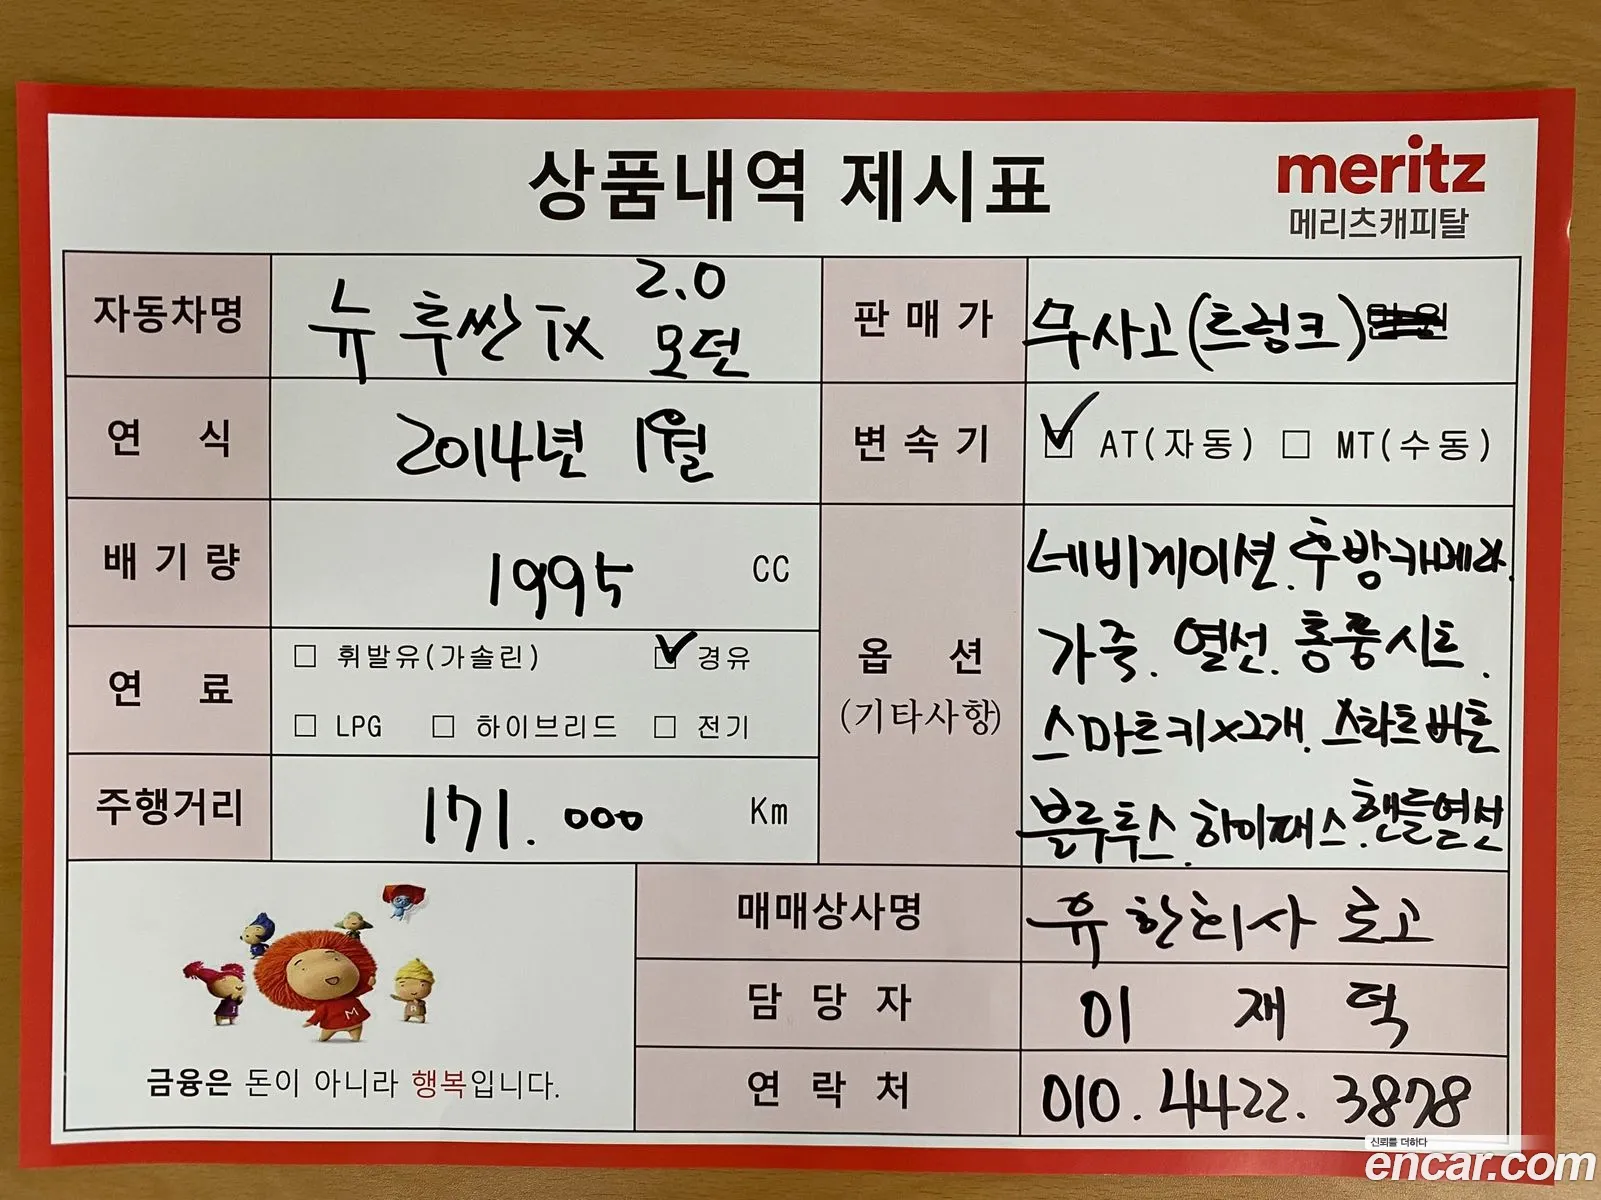 상품내역 제시표
meritz
메리츠캐피탈
자동차명
뉴 투싼 ix 2.0 모던
판매가
무사고(트렁크)
연 식
2014년 1월
변속기
AT(자동) MT(수동)
배기량
1995 CC
연 료
휘발유(가솔린) 경유
LPG 하이브리드 전기
주행거리
171.000 Km
옵 션
(기타사항)
네비게이션.후방카메라.
가죽. 열선. 통풍시트.
스마트키x2개. 스타트버튼
블루투스.하이패스.핸들열선
금융은 돈이 아니라 행복입니다.
매매상사명
유한회사 로고
담당자
이재덕
연락처
010.4422.3878
신뢰를 더하다
encar.com